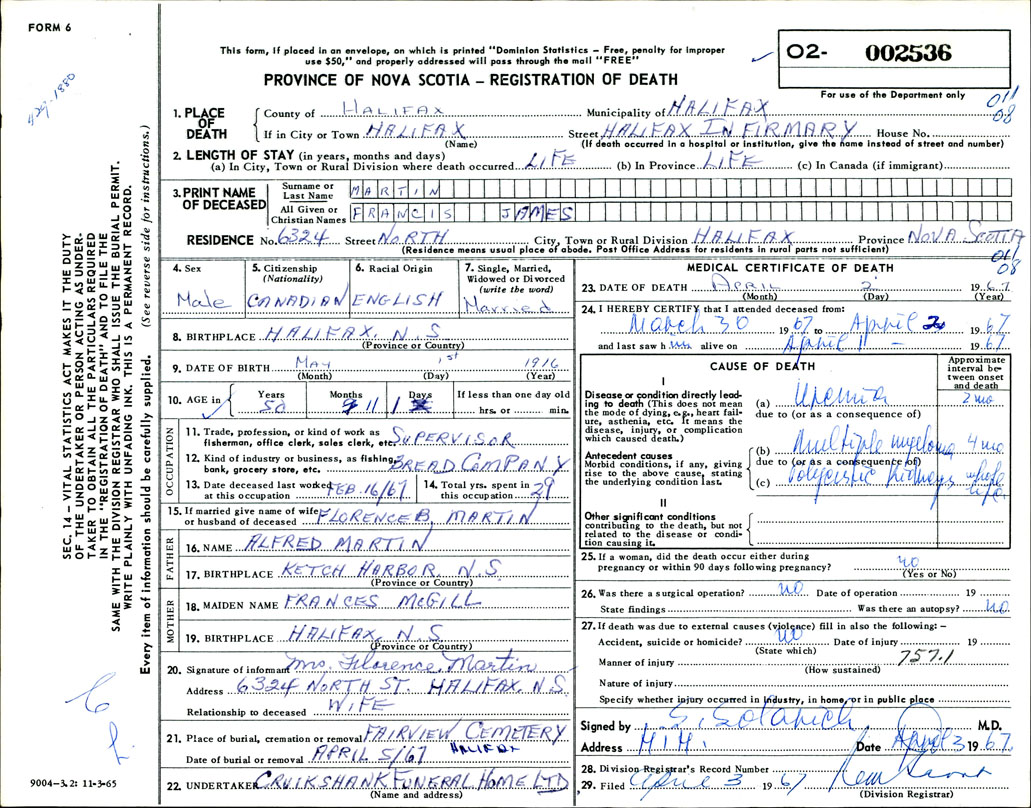 FORM 6
429-1880
This form, if placed in an envelope, on which is printed "Dominion Statistics – Free, penalty for improper
use $50," and properly addressed will pass through the mail "FREE"
PROVINCE OF NOVA SCOTIA – REGISTRATION OF DEATH
02- 002536
For use of the Department only
011
08
1. PLACE OF DEATH
County of HALIFAX Municipality of HALIFAX
If in City or Town HALIFAX Street HALIFAX INFIRMARY House No.
(Name) (If death occurred in a hospital or institution, give the name instead of street and number)
2. LENGTH OF STAY (in years, months and days)
(a) In City, Town or Rural Division where death occurred LIFE (b) In Province LIFE (c) In Canada (if immigrant)
3. PRINT NAME OF DECEASED
Surname or Last Name MARTIN
All Given or Christian Names FRANCIS JAMES
RESIDENCE No. 6324 Street NORTH City, Town or Rural Division HALIFAX Province NOVA SCOTIA
(Residence means usual place of abode. Post Office Address for residents in rural parts not sufficient)
011
08
4. Sex Male
5. Citizenship (Nationality) CANADIAN
6. Racial Origin ENGLISH
7. Single, Married, Widowed or Divorced (write the word) Married
8. BIRTHPLACE HALIFAX, N.S.
(Province or Country)
9. DATE OF BIRTH MAY 1st 1916
(Month) (Day) (Year)
10. AGE in Years 50 Months 11 Days 1 If less than one day old
hrs. or min.
OCCUPATION
11. Trade, profession, or kind of work as
fisherman, office clerk, sales clerk, etc. SUPERVISOR
12. Kind of industry or business, as fishing,
bank, grocery store, etc. BREAD COMPANY
13. Date deceased last worked
at this occupation FEB. 16/67
14. Total yrs. spent in
this occupation 29
15. If married give name of wife
or husband of deceased FLORENCE B. MARTIN
FATHER
16. NAME ALFRED MARTIN
17. BIRTHPLACE KETCH HARBOR, N.S.
(Province or Country)
MOTHER
18. MAIDEN NAME FRANCES McGILL
19. BIRTHPLACE HALIFAX, N.S
(Province or Country)
20. Signature of informant Mrs. Florence Martin
Address 6324 NORTH ST. HALIFAX, N.S.
Relationship to deceased WIFE
21. Place of burial, cremation or removal FAIRVIEW CEMETERY
HALIFAX
Date of burial or removal APRIL 5/67
22. UNDERTAKER CRUIKSHANK FUNERAL HOME LTD
(Name and address)
MEDICAL CERTIFICATE OF DEATH
23. DATE OF DEATH APRIL 2 1967
(Month) (Day) (Year)
24. I HEREBY CERTIFY that I attended deceased from:
March 30 1967 to April 2 1967
and last saw him alive on April 1 – 1967
CAUSE OF DEATH
Approximate interval between onset and death
I
Disease or condition directly leading
to death (This does not mean
the mode of dying, e.g., heart failure,
asthenia, etc. It means the
disease, injury, or complication
which caused death.)
(a) Uremia 2 mo
due to (or as a consequence of)
Antecedent causes
Morbid conditions, if any, giving
rise to the above cause, stating
the underlying condition last.
(b) Multiple myeloma 4 mo
due to (or as a consequence of)
(c) Polycistic kidneys whole life
II
Other significant conditions
contributing to the death, but not
related to the disease or condition
causing it.
25. If a woman, did the death occur either during
pregnancy or within 90 days following pregnancy? no
(Yes or No)
26. Was there a surgical operation? no Date of operation 19
State findings Was there an autopsy? no
27. If death was due to external causes (violence) fill in also the following:–
Accident, suicide or homicide? no Date of injury 19
(State which)
757.1
Manner of injury
(How sustained)
Nature of injury
Specify whether injury occurred in industry, in home, or in public place
Signed by M.D.
Address H.I.H. Date April 3 1967.
28. Division Registrar's Record Number
29. Filed April 3 1967
(Division Registrar)
SEC. 14 – VITAL STATISTICS ACT MAKES IT THE DUTY
OF THE UNDERTAKER OR PERSON ACTING AS UNDER-
TAKER TO OBTAIN ALL THE PARTICULARS REQUIRED
IN THE "REGISTRATION OF DEATH" AND TO FILE THE
SAME WITH THE DIVISION REGISTRAR WHO SHALL ISSUE THE BURIAL PERMIT.
WRITE PLAINLY WITH UNFADING INK. THIS IS A PERMANENT RECORD.
Every item of information should be carefully supplied. (See reverse side for instructions.)
9004–3.2: 11-3-65